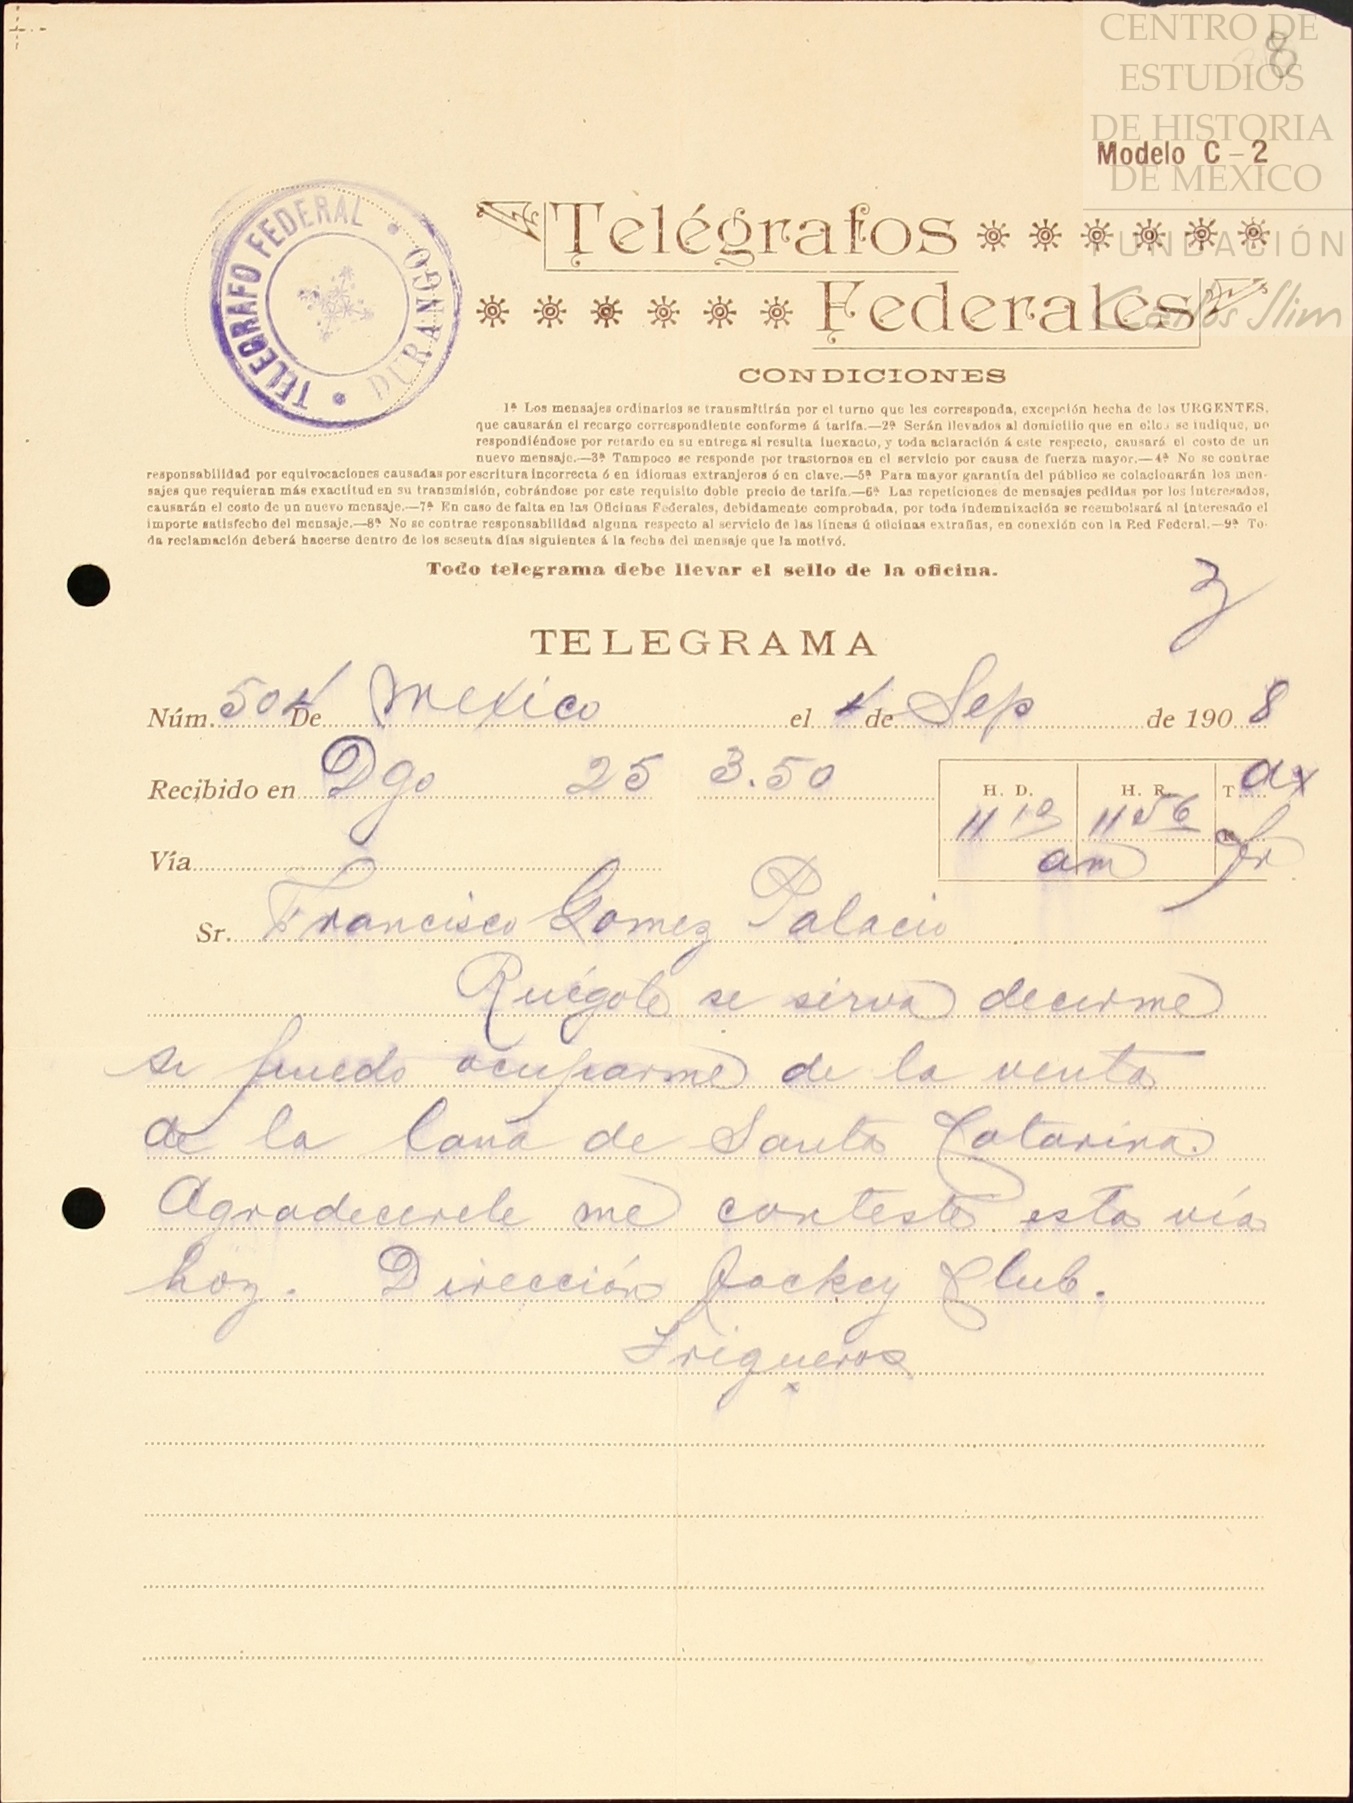 8
CENTRO DE
ESTUDIOS
DE HISTORIA
DE MEXICO
FUNDACIÓN
Carlos Slim
Modelo C-2
TELEGRAFO FEDERAL * DURANGO *
Telégrafos
Federales
CONDICIONES
1ª Los mensajes ordinarios se transmitirán por el turno que les corresponda, excepción hecha de los URGENTES,
que causarán el recargo correspondiente conforme á tarifa.—2ª Serán llevados al domicilio que en ellos se indique, no
respondiéndose por retardo en su entrega si resulta inexacto, y toda aclaración á este respecto, causará el costo de un
nuevo mensaje.—3ª Tampoco se responde por trastornos en el servicio por causa de fuerza mayor.—4ª No se contrae
responsabilidad por equivocaciones causadas por escritura incorrecta ó en idiomas extranjeros ó en clave.—5ª Para mayor garantía del público se colacionarán los men-
sajes que requieran más exactitud en su transmisión, cobrándose por este requisito doble precio de tarifa.—6ª Las repeticiones de mensajes pedidas por los interesados,
causarán el costo de un nuevo mensaje.—7ª En caso de falta en las Oficinas Federales, debidamente comprobada, por toda indemnización se reembolsará al interesado el
importe satisfecho del mensaje.—8ª No se contrae responsabilidad alguna respecto al servicio de las líneas ú oficinas extrañas, en conexión con la Red Federal.—9ª To-
da reclamación deberá hacerse dentro de los sesenta días siguientes á la fecha del mensaje que la motivó.
Todo telegrama debe llevar el sello de la oficina.
3
TELEGRAMA
Núm. 504 De Mexico el 4 de Sep de 1908
Recibido en Dgo 25 3.50
H. D. H. R. T. ax
11 10 11 56 R.
am
Vía
Sr. Francisco Gomez Palacio
Ruégole se sirva decirme
si puedo ocuparme de la venta
de la lana de Santa Catarina.
Agradecerele me conteste esta vía
hoy. Dirección Jockey Club.
Trigueros
x